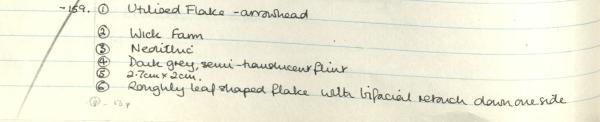 -159. ① Utilised Flake - arrowhead
② Wick Farm
③ Neolithic
④ Dark grey, semi-translucent flint
⑤ 2.7cm x 2cm.
⑥ Roughly leaf shaped flake with bifacial retouch down one side